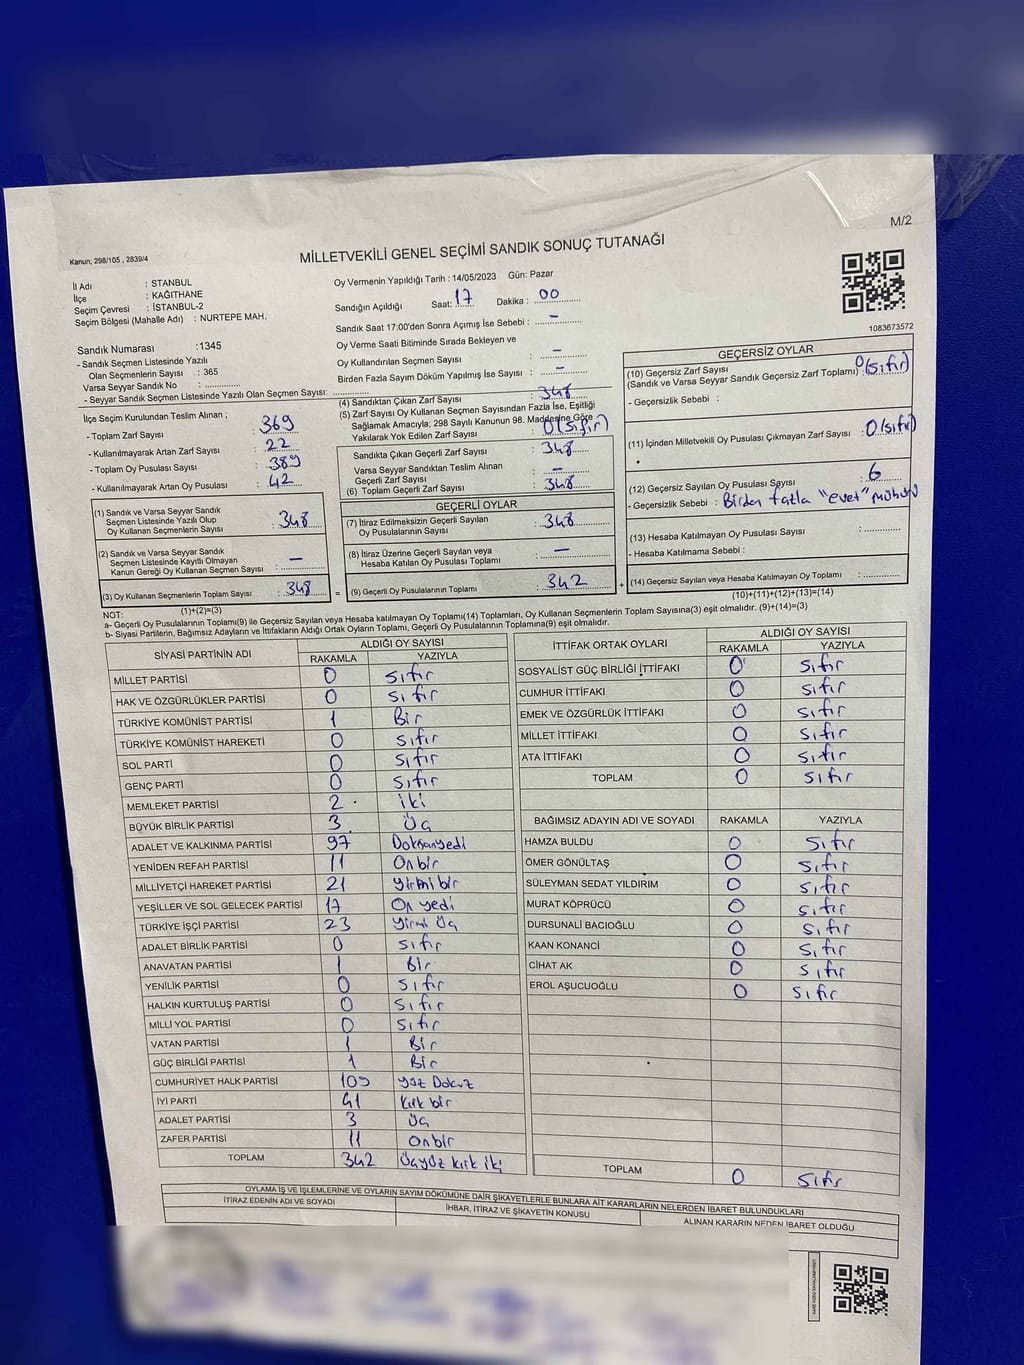 M/2
Kanun; 298/105 , 2839/4
MİLLETVEKİLİ GENEL SEÇİMİ SANDIK SONUÇ TUTANAĞI
İl Adı : STANBUL
İlçe : KAĞITHANE
Seçim Çevresi : İSTANBUL-2
Seçim Bölgesi (Mahalle Adı) : NURTEPE MAH.
Oy Vermenin Yapıldığı Tarih : 14/05/2023 Gün: Pazar
Sandığın Açıldığı Saat: 17 Dakika : 00
Sandık Saat 17:00'den Sonra Açımış İse Sebebi : –
Oy Verme Saati Bitiminde Sırada Bekleyen ve
Oy Kullandırılan Seçmen Sayısı : –
Birden Fazla Sayım Döküm Yapılmış İse Sayısı : –
1083673572
Sandık Numarası :1345
- Sandık Seçmen Listesinde Yazılı
Olan Seçmenlerin Sayısı : 365
Varsa Seyyar Sandık No :
- Seyyar Sandık Seçmen Listesinde Yazılı Olan Seçmen Sayısı:
İlçe Seçim Kurulundan Teslim Alınan ;
- Toplam Zarf Sayısı : 369
- Kullanılmayarak Artan Zarf Sayısı : 22
- Toplam Oy Pusulası Sayısı : 389
- Kullanılmayarak Artan Oy Pusulası : 42
(1) Sandık ve Varsa Seyyar Sandık
Seçmen Listesinde Yazılı Olup
Oy Kullanan Seçmenlerin Sayısı : 348
(2) Sandık ve Varsa Seyyar Sandık
Seçmen Listesinde Kayıtlı Olmayan
Kanun Gereği Oy Kullanan Seçmen Sayısı : –
(3) Oy Kullanan Seçmenlerin Toplam Sayısı : 348
(1)+(2)=(3)
(4) Sandıktan Çıkan Zarf Sayısı : 348
(5) Zarf Sayısı Oy Kullanan Seçmen Sayısından Fazla İse, Eşitliği
Sağlamak Amacıyla; 298 Sayılı Kanunun 98. Maddesine Göre
Yakılarak Yok Edilen Zarf Sayısı : 0(sıfır)
Sandıkta Çıkan Geçerli Zarf Sayısı : 348
Varsa Seyyar Sandıktan Teslim Alınan
Geçerli Zarf Sayısı : –
(6) Toplam Geçerli Zarf Sayısı : 348
GEÇERLİ OYLAR
(7) İtiraz Edilmeksizin Geçerli Sayılan
Oy Pusulalarının Sayısı : 348
(8) İtiraz Üzerine Geçerli Sayılan veya
Hesaba Katılan Oy Pusulası Toplamı : –
= (9) Geçerli Oy Pusulalarının Toplamı : 342 +
GEÇERSİZ OYLAR
(10) Geçersiz Zarf Sayısı
(Sandık ve Varsa Seyyar Sandık Geçersiz Zarf Toplamı) : 0(sıfır)
- Geçersizlik Sebebi :
(11) İçinden Milletvekili Oy Pusulası Çıkmayan Zarf Sayısı : 0(sıfır)
(12) Geçersiz Sayılan Oy Pusulası Sayısı : 6
- Geçersizlik Sebebi : Birden fazla "evet" mühürü
(13) Hesaba Katılmayan Oy Pusulası Sayısı :
- Hesaba Katılmama Sebebi :
(14) Geçersiz Sayılan veya Hesaba Katılmayan Oy Toplamı :
(10)+(11)+(12)+(13)=(14)
NOT:
a- Geçerli Oy Pusulalarının Toplamı(9) ile Geçersiz Sayılan veya Hesaba katılmayan Oy Toplamı(14) Toplamları, Oy Kullanan Seçmenlerin Toplam Sayısına(3) eşit olmalıdır. (9)+(14)=(3)
b- Siyasi Partilerin, Bağımsız Adayların ve İttifakların Aldığı Ortak Oyların Toplamı, Geçerli Oy Pusulalarının Toplamına(9) eşit olmalıdır.
SİYASİ PARTİNİN ADI ALDIĞI OY SAYISI
RAKAMLA YAZIYLA
MİLLET PARTİSİ 0 sıfır
HAK VE ÖZGÜRLÜKLER PARTİSİ 0 sıfır
TÜRKİYE KOMÜNİST PARTİSİ 1 Bir
TÜRKİYE KOMÜNİST HAREKETİ 0 sıfır
SOL PARTİ 0 sıfır
GENÇ PARTİ 0 sıfır
MEMLEKET PARTİSİ 2 iki
BÜYÜK BİRLİK PARTİSİ 3 Üç
ADALET VE KALKINMA PARTİSİ 97 Doksanyedi
YENİDEN REFAH PARTİSİ 11 Onbir
MİLLİYETÇİ HAREKET PARTİSİ 21 yirmi bir
YEŞİLLER VE SOL GELECEK PARTİSİ 17 On yedi
TÜRKİYE İŞÇİ PARTİSİ 23 yirmi üç
ADALET BİRLİK PARTİSİ 0 sıfır
ANAVATAN PARTİSİ 1 Bir
YENİLİK PARTİSİ 0 sıfır
HALKIN KURTULUŞ PARTİSİ 0 sıfır
MİLLİ YOL PARTİSİ 0 sıfır
VATAN PARTİSİ 1 Bir
GÜÇ BİRLİĞİ PARTİSİ 1 Bir
CUMHURİYET HALK PARTİSİ 109 yüz Dokuz
İYİ PARTİ 41 kırk bir
ADALET PARTİSİ 3 üç
ZAFER PARTİSİ 11 onbir
TOPLAM 342 üçyüz kırk iki
İTTİFAK ORTAK OYLARI ALDIĞI OY SAYISI
RAKAMLA YAZIYLA
SOSYALİST GÜÇ BİRLİĞİ İTTİFAKI 0 sıfır
CUMHUR İTTİFAKI 0 sıfır
EMEK VE ÖZGÜRLÜK İTTİFAKI 0 sıfır
MİLLET İTTİFAKI 0 sıfır
ATA İTTİFAKI 0 sıfır
TOPLAM 0 sıfır
BAĞIMSIZ ADAYIN ADI VE SOYADI RAKAMLA YAZIYLA
HAMZA BULDU 0 sıfır
ÖMER GÖNÜLTAŞ 0 sıfır
SÜLEYMAN SEDAT YILDIRIM 0 sıfır
MURAT KÖPRÜCÜ 0 sıfır
DURSUNALİ BACIOĞLU 0 sıfır
KAAN KONANCİ 0 sıfır
CİHAT AK 0 sıfır
EROL AŞUCUOĞLU 0 sıfır
TOPLAM 0 sıfır
OYLAMA İŞ VE İŞLEMLERİNE VE OYLARIN SAYIM DÖKÜMÜNE DAİR ŞİKAYETLERLE BUNLARA AİT KARARLARIN NELERDEN İBARET BULUNDUKLARI
İTİRAZ EDENİN ADI VE SOYADI İHBAR, İTİRAZ VE ŞİKAYETİN KONUSU ALINAN KARARIN NEDEN İBARET OLDUĞU